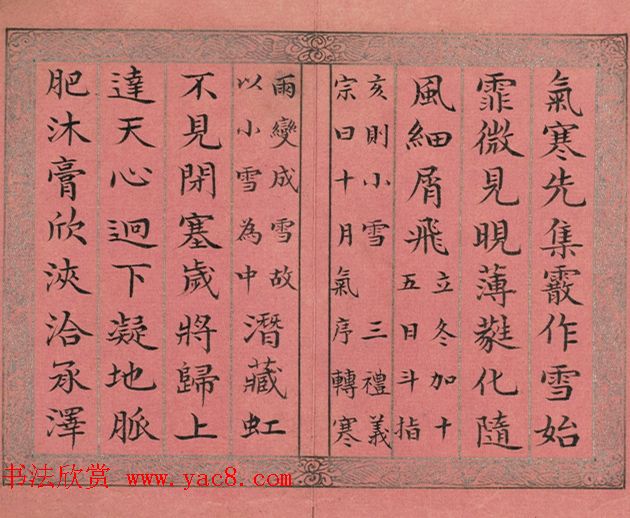 氣寒先集霰作雪始
霏微見晛薄蕤化隨
風細屑飛
立冬加十
五日斗指
亥則小雪 三禮義
宗曰十月氣序轉寒
雨變成雪故
以小雪為中
潛藏虹
不見閉塞歲將歸上
達天心逈下凝地脈
肥沐膏欣浹洽承澤
书法欣赏 www.yac8.com